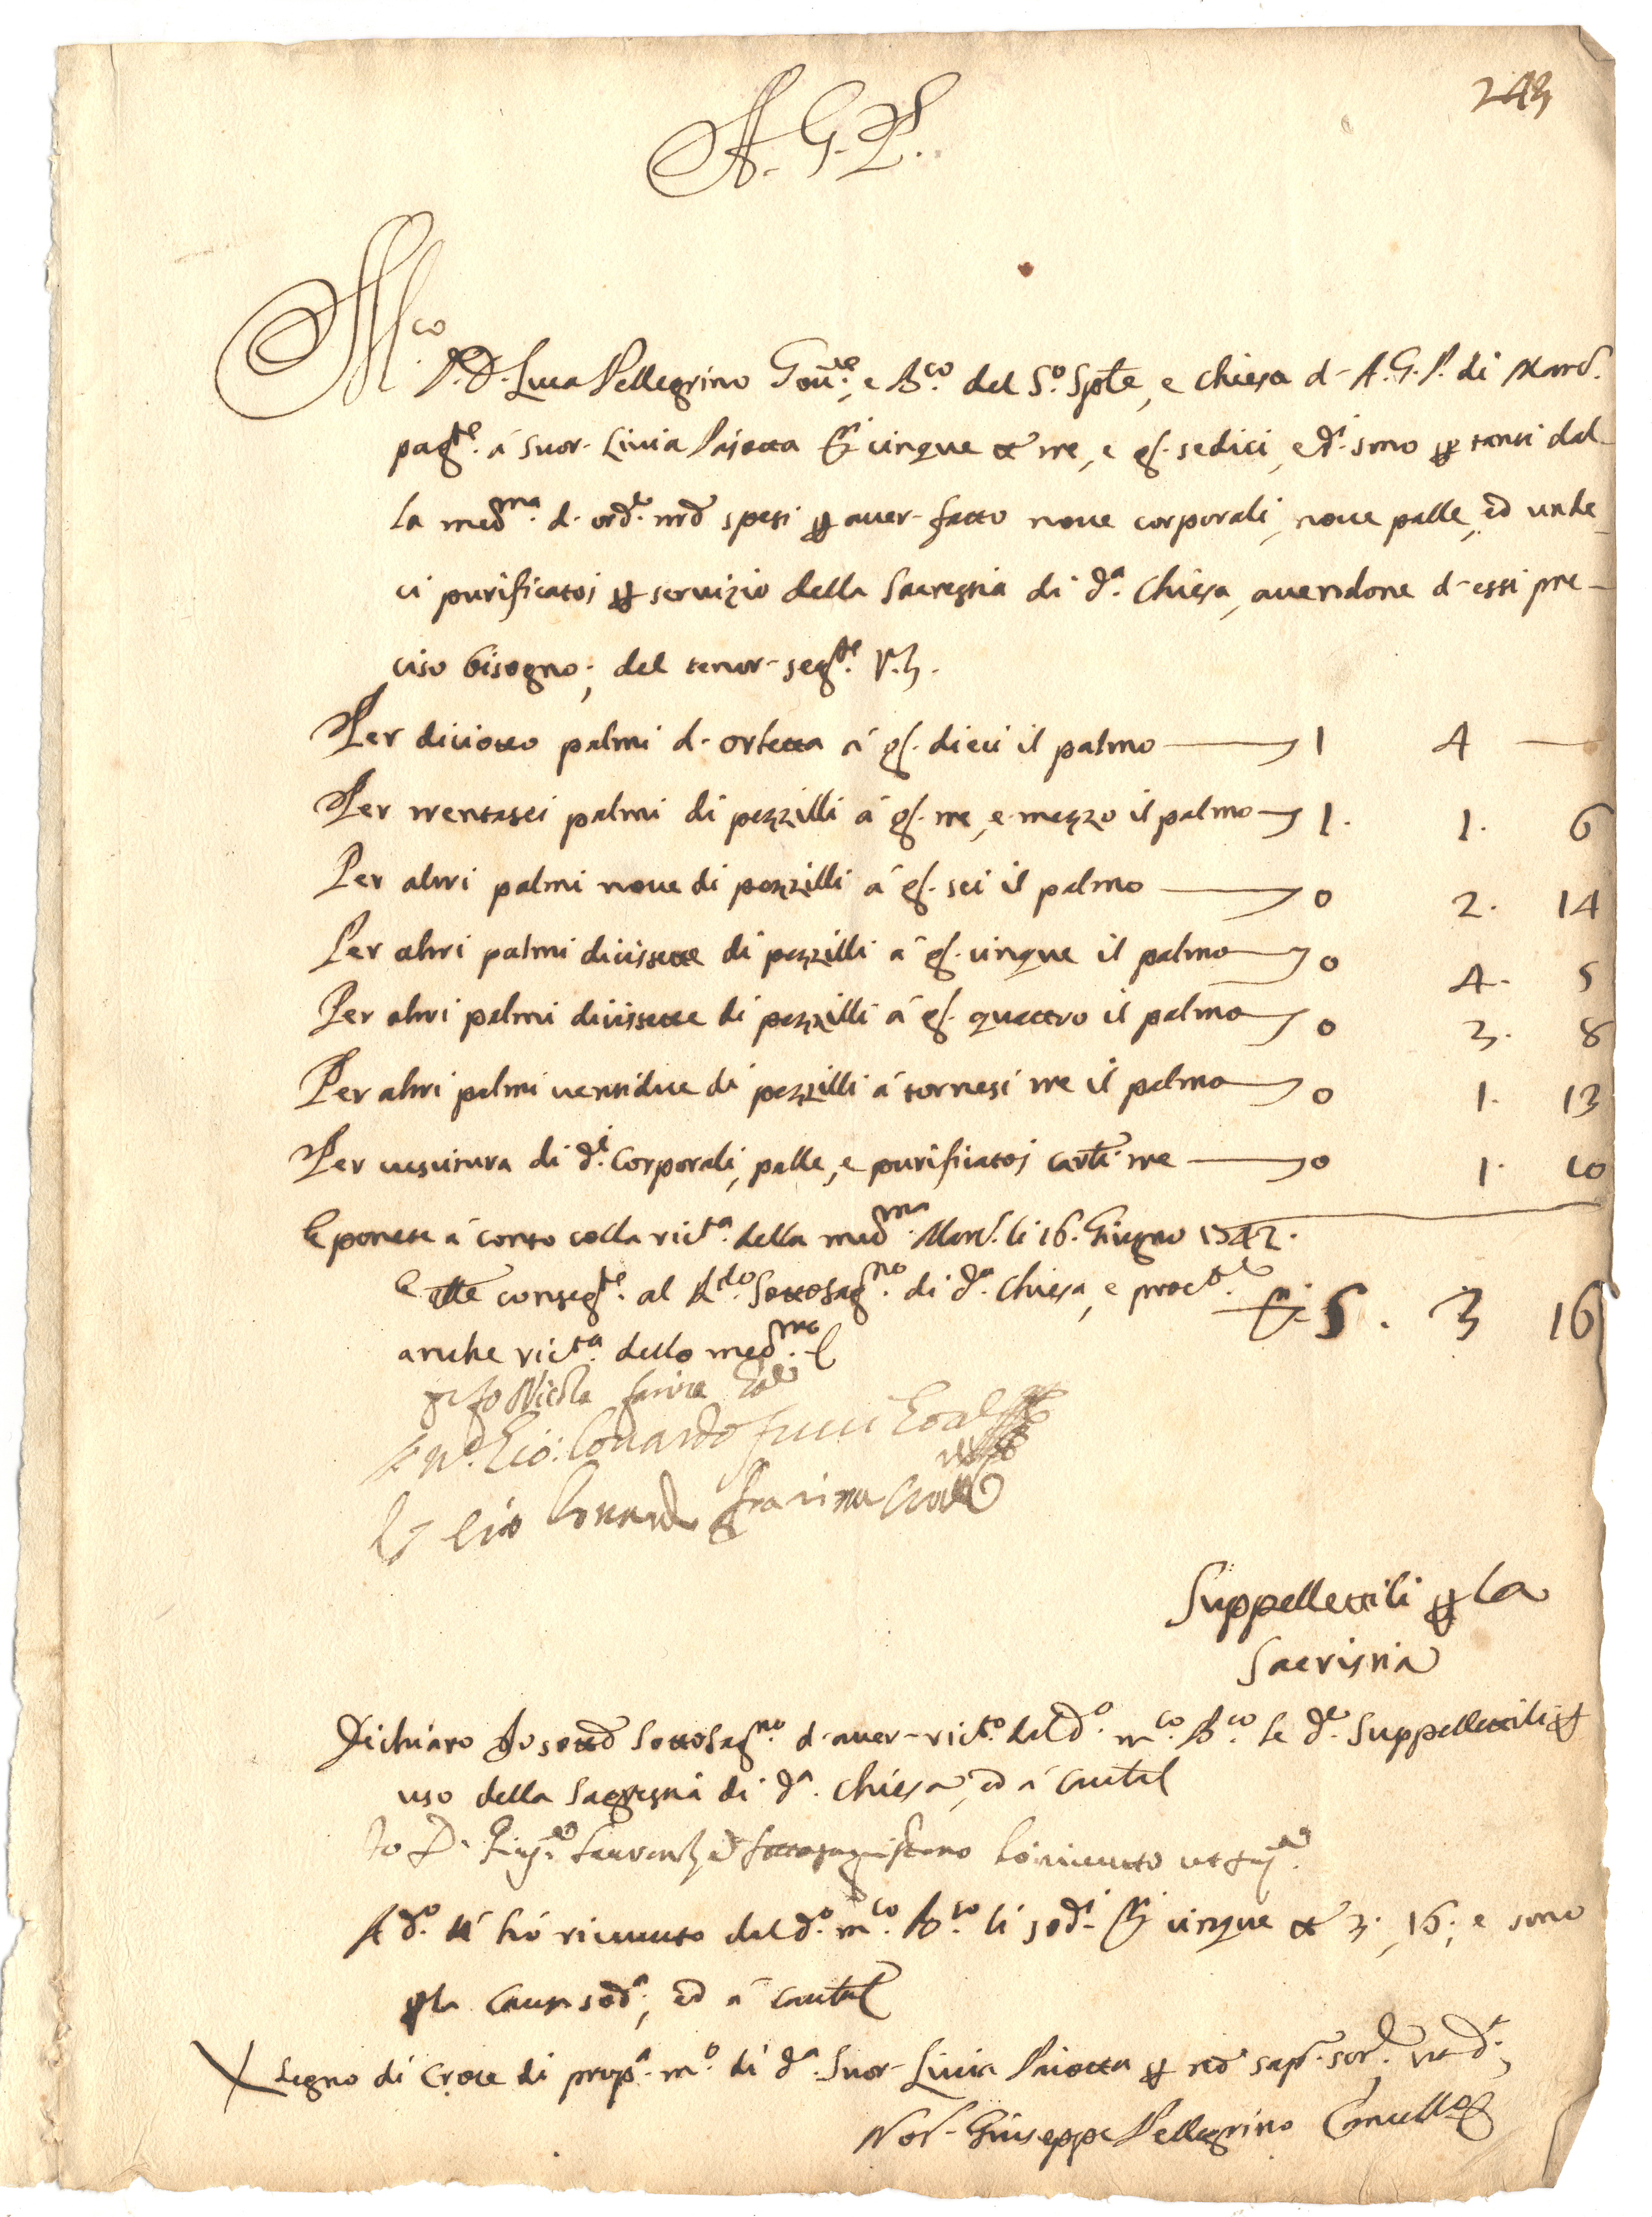 243
A. G. P.
M.co
P. D. Luca Pellegrino Gou.re, e B.co del S.o Spte, e Chiesa d- A. G. P. di Mard.
pag.te á Suor- Liuia Pajotta cinque tt tre, e gr. sedici, e d.i sono p tanti dal-
la med.ma d- ord.e nrõ spesi p auer- fatto noue corporali, noue palle, ed unde-
ci purificatoj p seruizio della Sacrestia di d.a Chiesa, auendone d- essi pre-
ciso bisogno; del tenor- seg.te V.z.
Per diciotto palmi d- orletta á gr. dieci il palmo — 1 4 —
Per trentasei palmi di pezzilli á gr. tre, e mezzo il palmo — 1. 1. 6
Per altri palmi noue di pezzilli á gr. sei il palmo — 0 2. 14
Per altri palmi dicissette di pezzilli á gr. cinque il palmo — 0 4. 5
Per altri palmi dicissette di pezzilli á gr. quattro il palmo — 0 3. 8
Per altri palmi ventidue di pezzilli á tornesi tre il palmo — 0 1. 13
Per cuscitura di d.i Corporali, palle, e purificatoj carle. tre — 0 1. 10
E ponete á conto colla ric.ta della med.ma Mard. li 16. Giugno 1742.
E tte conseg.te al R.do Sottosag.no di d.a Chiesa, e proc.te 5. 3 16
anche ric.ta dello med.mo
Nicola farina
Lio: Lonardo
Lio Lonardo frarina
Suppellettili p la
Sacristia
Dichiaro Io sottõ Sottosag.no d- auer- ric.to dal d.o m.co B.co le d.e Suppellettili p
uso della Sagrestia di d.a Chiesa, ed á Cautel
Io D. sottosagristano hó riceuuto ut
A d.o hó riceuuto dal d.o m.co B.co li sod.i cinque tt 3, 16; e sono
p la Causa sod.a, ed á Cautel
Segno di Croce di prop.a m.o di d.a Suor- Liuia Paiotta p nõ saper- scr.e ut d.a,
Not- Giuseppe Pellegrino